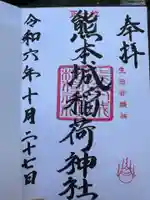 奉拝
熊本城稲荷神社
令和六年十月二十七日